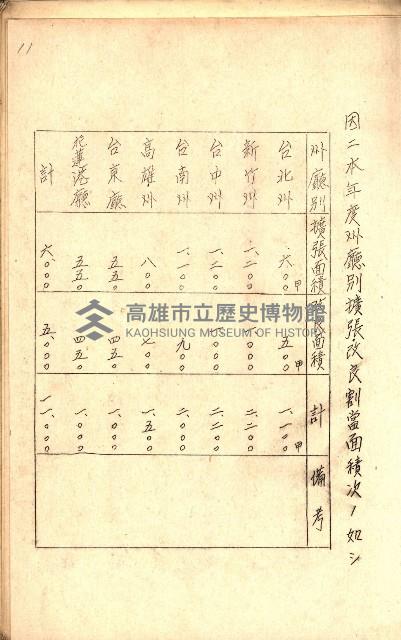 11
因ニ本年度州廳別擴張改良割當面積次ノ如シ
州廳別 擴張面積 改良面積 計 備考
台北州 六〇〇甲 五〇〇甲 一、一〇〇甲
新竹州 一、二〇〇 一、〇〇〇 二、二〇〇
台中州 一、二〇〇 一、〇〇〇 二、二〇〇
台南州 一、一〇〇 九〇〇 二、〇〇〇
高雄州 八〇〇 七〇〇 一、五〇〇
台東廳 五五〇 四五〇 一、〇〇〇
花蓮港廳 五五〇 四五〇 一、〇〇〇
計 六、〇〇〇 五、〇〇〇 一一、〇〇〇
高雄市立歷史博物館
KAOHSIUNG MUSEUM OF HISTORY